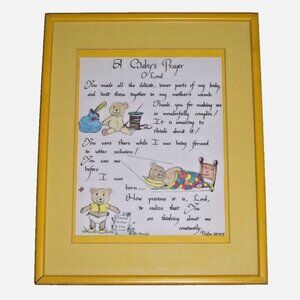 A Baby's Prayer
O Lord
You made all the delicate, inner parts of my body,
and knit them together in my mother's womb.
Thank you for making me
so wonderfully complex!
It is amazing to
think about it!
You were there while I was being formed
in utter seclusion!
You saw me
before
I was
born....
How precious it is, Lord,
to realize that You
are thinking about me
constantly.
Psalm